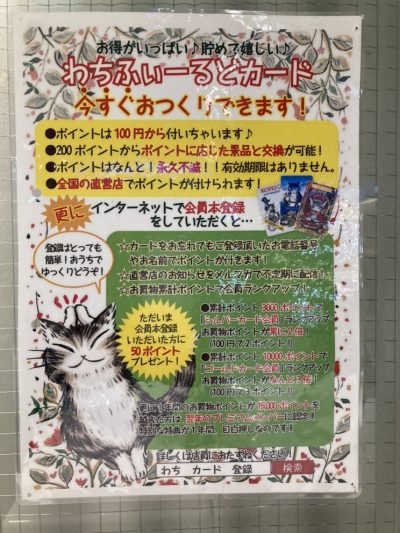 お得がいっぱい♪貯めて嬉しい♪
わちふぃーるどカード
今すぐおつくりできます!
●ポイントは100円から付いちゃいます♪
●200ポイントからポイントに応じた景品と交換が可能!
●ポイントはなんと!永久不滅!!有効期限はありません。
●全国の直営店でポイントが付けられます!
更に
インターネットで会員本登録
をしていただくと…
登録はとっても
簡単!おうちで
ゆっくりどうぞ!
☆カードをお忘れでもご登録頂いたお電話番号
やお名前でポイントが付きます!
☆直営店のお知らせをメルマガで不定期に配信!
☆お買物累計ポイントで会員ランクアップ!
ただいま
会員本登録
いただいた方に
50ポイント
プレゼント!
●累計ポイント3000ポイントで
「シルバーカード会員」ランクアップ
お買物ポイントが常に2倍!
(100円で2ポイント)
●累計ポイント10000ポイントで
「ゴールドカード会員」ランクアップ
お買物ポイントがなんと3倍!
(100円で3ポイント)
更に1年間のお買物ポイントが15,000ポイントを
越えた方は、翌年のプレミアムメンバーに認定!
特別な特典が1年間、目白押しなのです!
詳しくは店員におたずねください!
わち カード 登録 検索